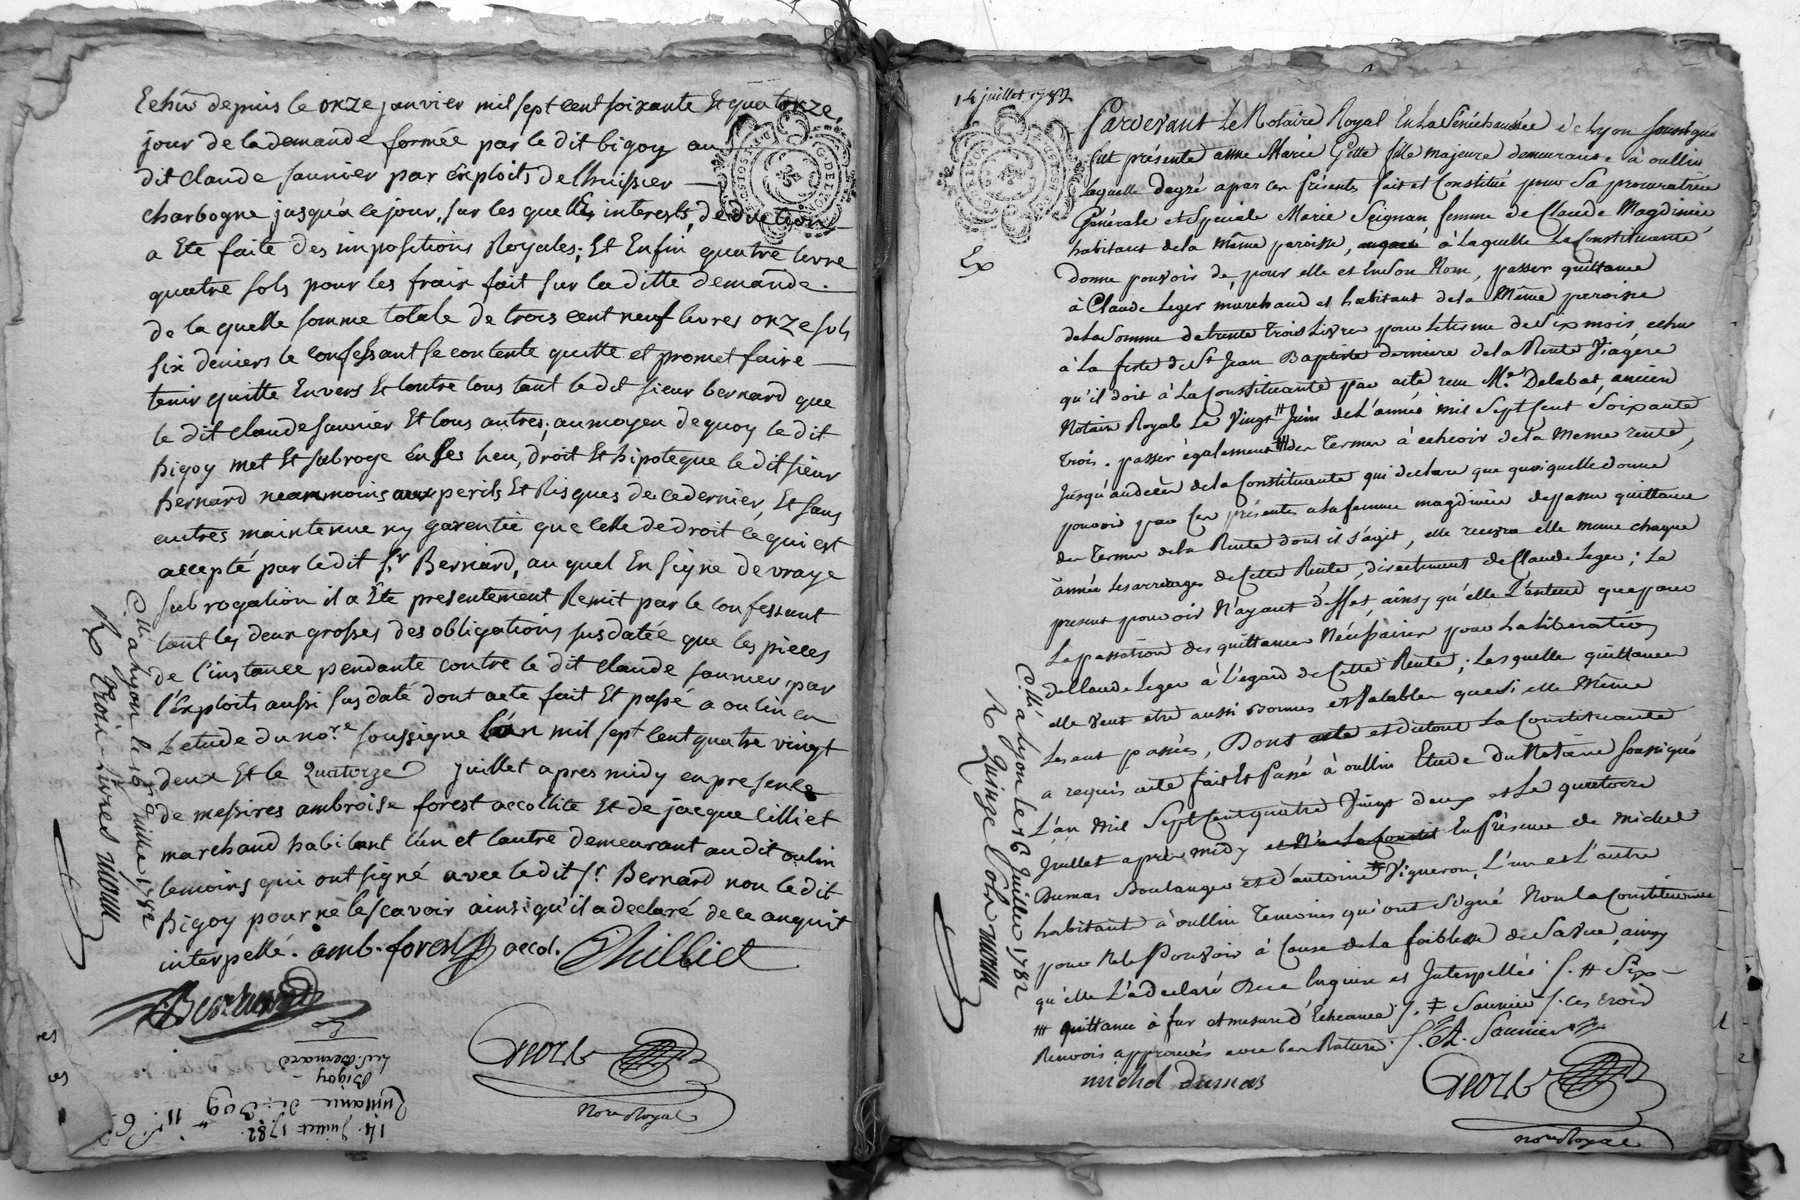 Echû depuis le onze janvier mil sept cent soixante Et quatorze,
jour de la demande formée par le dit bigoy au
dit Claude saunier par exploits de l'huissier
charbogne jusqu'a ce jour, sur les quelles interests, deduction
a Ete faite des impositions Royales; Et Enfin quatre livre
quatre sols pour les frair fait sur la ditte demande.
de la quelle somme totale de trois cent neuf livres onze sols
six deniers le confessant se contente quitte et promet faire
tenir quitte Envers Et Contre tous tant le dit sieur bernard que
le dit Claude saunier Et tous autres; au moyen de quoy le dit
Bigoy met Et subroge En ses lieu, droit Et hipoteque le dit sieur
Bernard neammoins aux perils Et Risques de ce dernier, Et sans
autres maintenue ny garentie que celle de droit ce qui est
accepté par le dit Sr Bernard, au quel En signe de vraye
subrogation il a Ete presentement Remit par le confessant
tant les deux grosses des obligations susdatée que les pieces
de l'instance pendante contre le dit Claude saunier, par
l'exploits aussi susdaté dont acte fait Et passé a oulin en
L'etude du nore soussigne l'an mil sept cent quatre vingt
deux Et le Quatorze juillet apres midy en presence
de messires ambroise forest accollite Et de jacque lilliet
marchand habitant l'un et l'autre demeurant au dit oulin
temoins qui ont signé avec le dit Sr. Bernard non le dit
Bigoy pour ne le scavoir ainsi qu'il a declaré de ce anquit
interpellé. amb. forest accol. J lilliet
Bernard
George
nore Royal
C.llé a Lyon le 16 juillet 1782
R. Trois Livres
14. Juillet 1782.
Quittance de 309 tt 11 s. 6 d.
Bigoy -
à Sr. Bernard
Ex
14 juillet 1782
Ex
Pardevant Le Notaire Royal En La Sénéchaussée de Lyon soussigné
fut présente anne Marie Gotte fille majeure demeurante à oullin
laquelle dagré a par ces présentes fait et Constitué pour Sa procuratrice
Générale et Spéciale Marie Seignan femme de Claude Magdinier
habitant de la Même paroisse, à Laquelle La Constituante
donne pouvoir de, pour elle et En son Nom, passer quittance
à Claude Leger marchand et habitant de la Même paroisse
de La Somme de trente trois Livres pour le terme de Six mois echu
à La feste de St Jean Baptiste derniere de la Rente Viagére
qu'il doit à La Constituante par acte reçu Me. Delabat, ancien
Notaire Royal Le Vingt tt Juin de L'année mil Sept Cent Soixante
trois. passer également ttt des Termes à echeoir de la Meme rente,
Jusqu'au decès de la Constituante qui declare que quoiquelle donne
pouvoir par Ces présentes a la femme magdinier de passer quittance
des Termes de la Rente dont il s'agit, elle recevra elle meme chaque
année Les arrérages de Cette Rente, directement de Claude Leger; Le
present pouvoir N'ayant d'effet, ainsy qu'elle L'entend que pour
La passation des quittances Nécessaires pour La liberation
de Claude Leger à L'egard de Cette Rente; Lesquelle quittances
elle veut etre aussi bonnes et Valables que si elle Même
Les eut passées, Dont acte et dutout La Constituante
a requis acte fait Et Passé à oullin Etude du Notaire soussigné
L'an Mil Sept Cent quatre Vingt deux et Le quatorze
Juillet après midy et Ne La Constit En Présence de Michel
Dumas Boulanger et d'antoine ‡ Vigneron, L'un et L'autre
habitant à oullin Temoins qu'ont Signé Non La Constituante
pour Ne le Pouvoir à Cause de La foiblesse de Sa vue, ainsy
qu'elle L'a declaré De ce Enquise et Interpellée. /. tt Six -
ttt quittance à fur et mesure d'Echeance /. ‡ Saunier /. ces trois
Renvois approuvés
A. Saunier
michel dumas
George
nore Royal
C.llé a Lyon le 16 Juillet 1782
R. Quinze Sols